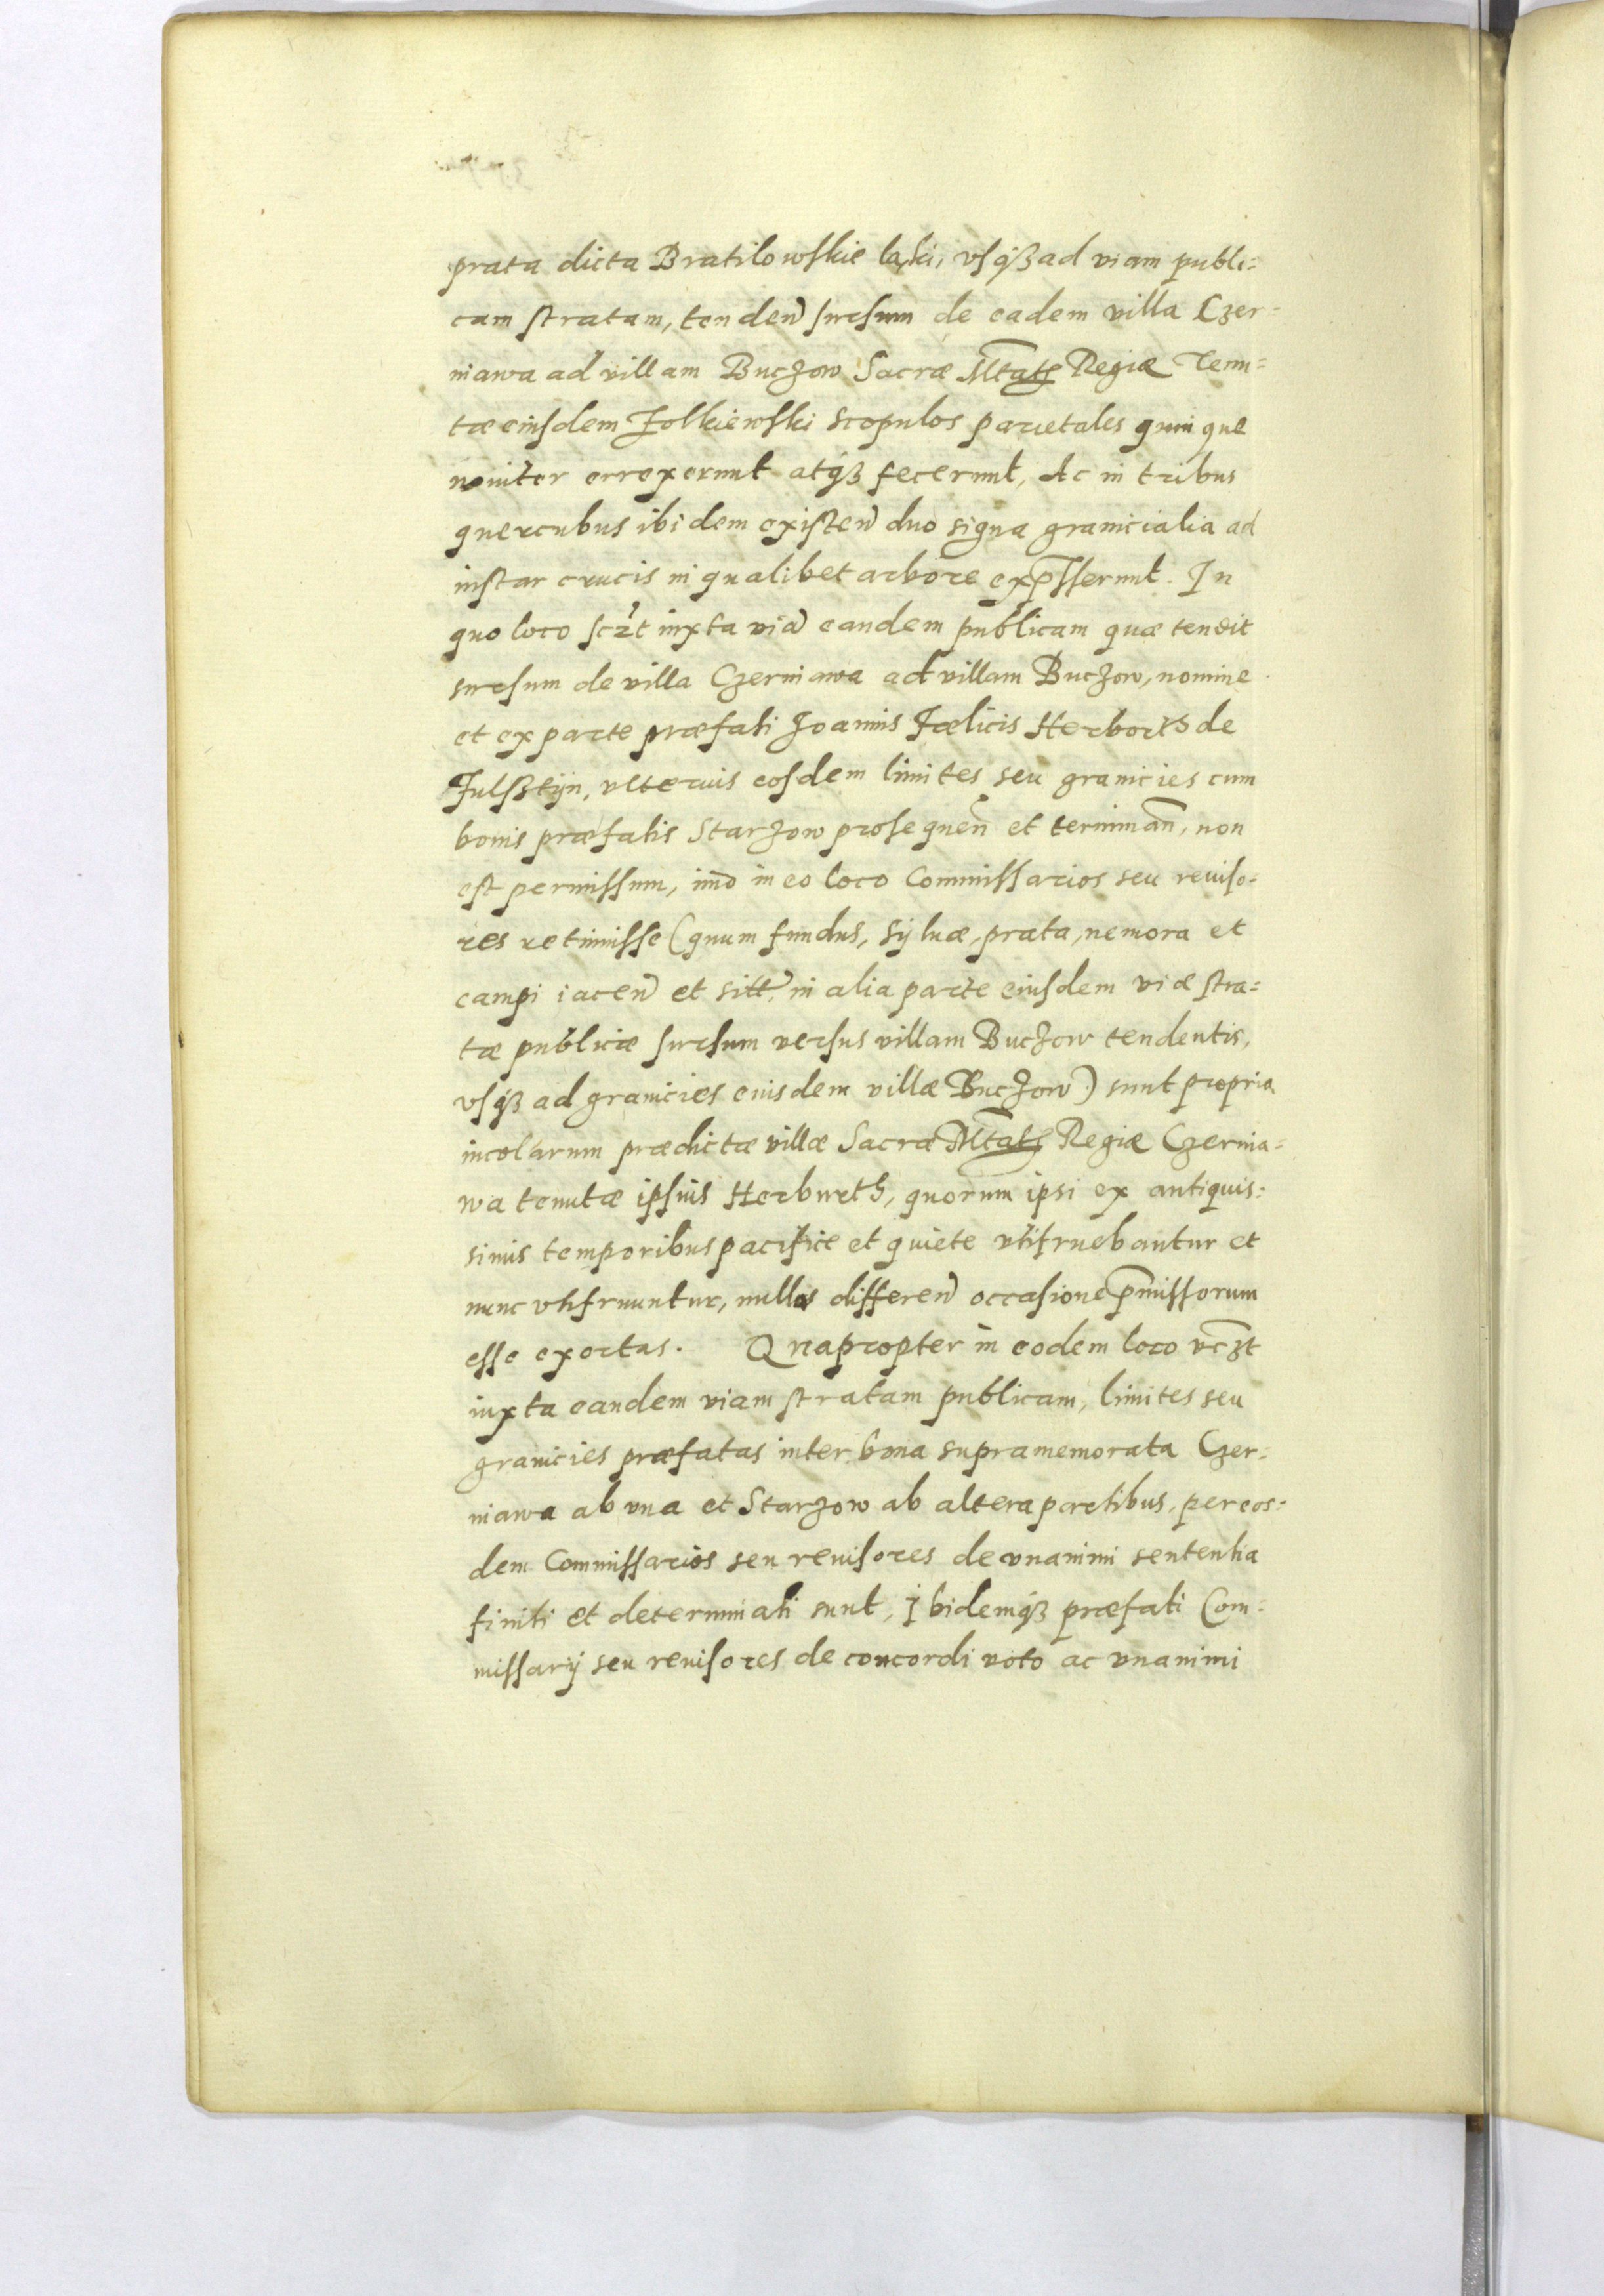 prata dicta Bratilowskie laski, vsqȝ ad viam publi:
cam stratam, tendeñ sursum de eadem villa Czer:
niawa ad villam Buczow Sacræ Mtatis Regiæ Tenu:
tæ eiusdem Zolkiewski scopulos parietales quinque
nouiter errexerunt atqȝ fecerunt, Ac in tribus
quercubus ibidem existeñ duo signa granicialia ad
instar crucis in qualibet arbore exp̄sserunt. In
quo loco sczt iuxta viã eandem publicam quæ tendit
sursum de villa Czerniawa ad villam Buczow, nomine
et ex parte præfati Joannis Fælicis Herborth de
Fulsztijn, vlterius eosdem limites seu granicies cum
bonis præfatis Starzow prosequeñ et terminañ, non
est permissum, imò in eo loco Commissarios seu reuiso:
res retinuisse (quum fundus, syluæ, prata, nemora et
campi iaceñ et sitt. in alia parte eiusdem viæ stra:
tæ publicæ sursum versus villam Buczow tendentis,
vsqȝ ad granicies eiusdem villæ Buczow) sunt propria
incolarum prædictæ villæ Sacræ Mtatis Regiæ Czernia:
wa tenutæ ipsius Herburth, quorum ipsi ex antiquis:
simis temporibus pacifice et quiete vtifruebantur et
nunc vtifruuntur, nullas differeñ occasione p̄missorum
esse exortas. Quapropter in eodem loco vczt
iuxta eandem viam stratam publicam, limites seu
granicies præfatas inter bona supramemorata Czer:
niawa ab vna et Starzow ab altera partibus, per eos:
dem Commissarios seu reuisores de vnanimi sententia
finiti et determinati sunt, Ibidemqȝ præfati Com:
missarij seu reuisores de concordi voto ac vnanimi